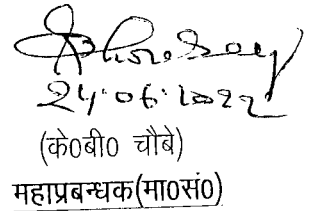 24.06.2022
(के0बी0 चौबे)
महाप्रबन्धक(मा0सं0)